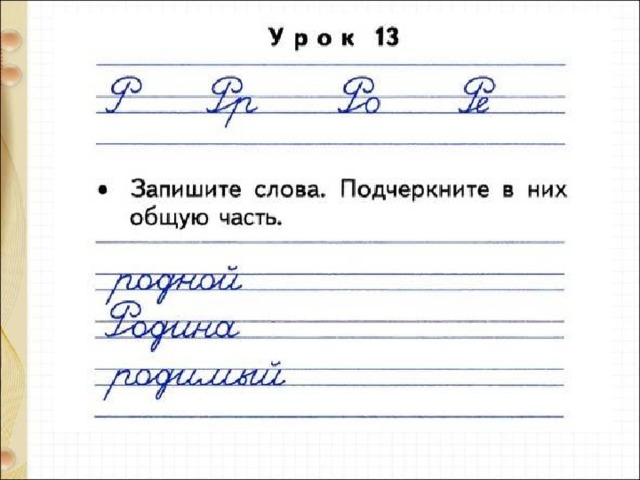 Урок 13
Р Рр Ро Ре
• Запишите слова. Подчеркните в них
общую часть.
родной
Родина
родимый